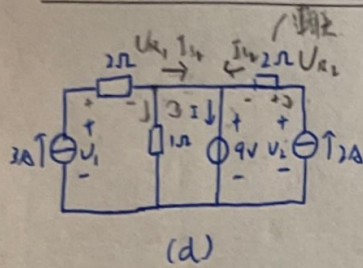 2Ω U_R1 I_4 I_4 2Ω U_R2
+ - - +
3A + U_1 - 1Ω 3 I + 9V - + U_2 - 2A
(d)